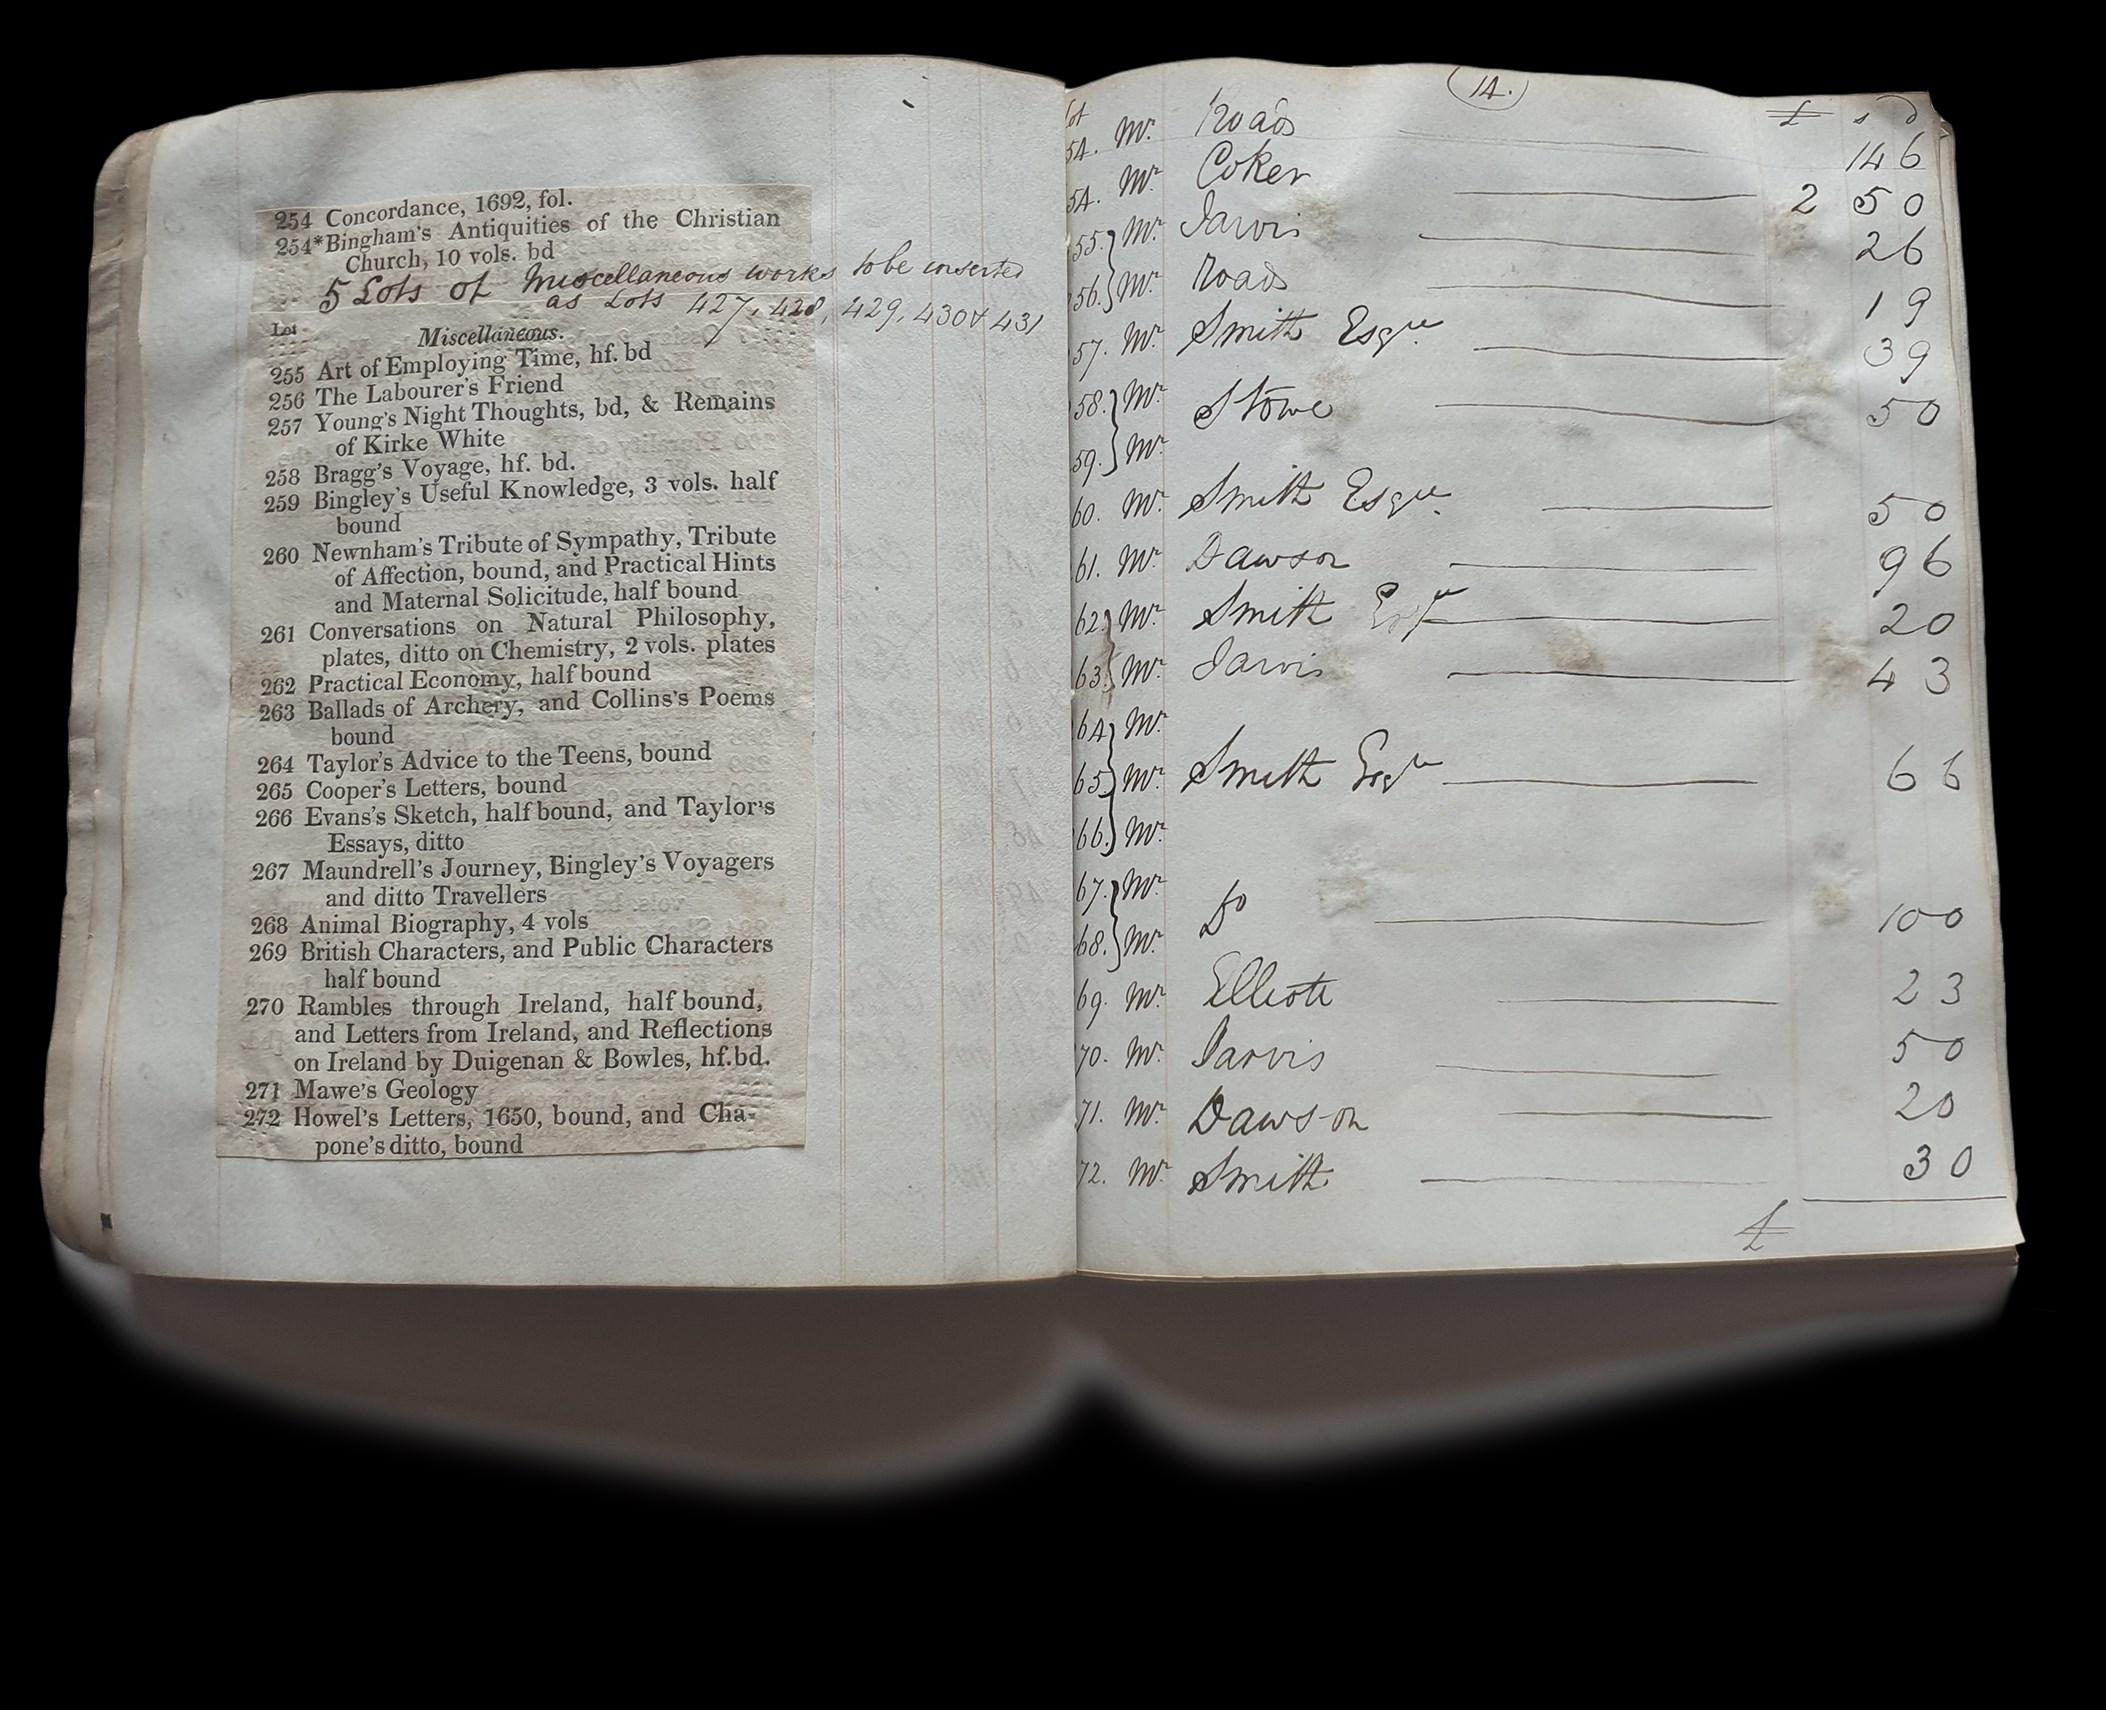 254 Concordance, 1692, fol.
254*Bingham's Antiquities of the Christian
Church, 10 vols. bd
5 Lots of Miscellaneous works to be inserted
as Lots 427, 428, 429, 430 & 431
Lot
Miscellaneous.
255 Art of Employing Time, hf. bd
256 The Labourer's Friend
257 Young's Night Thoughts, bd, & Remains
of Kirke White
258 Bragg's Voyage, hf. bd.
259 Bingley's Useful Knowledge, 3 vols. half
bound
260 Newnham's Tribute of Sympathy, Tribute
of Affection, bound, and Practical Hints
and Maternal Solicitude, half bound
261 Conversations on Natural Philosophy,
plates, ditto on Chemistry, 2 vols. plates
262 Practical Economy, half bound
263 Ballads of Archery, and Collins's Poems
bound
264 Taylor's Advice to the Teens, bound
265 Cooper's Letters, bound
266 Evans's Sketch, half bound, and Taylor's
Essays, ditto
267 Maundrell's Journey, Bingley's Voyagers
and ditto Travellers
268 Animal Biography, 4 vols
269 British Characters, and Public Characters
half bound
270 Rambles through Ireland, half bound,
and Letters from Ireland, and Reflections
on Ireland by Duigenan & Bowles, hf.bd.
271 Mawe's Geology
272 Howel's Letters, 1650, bound, and Cha-
pone's ditto, bound
14.
Lot £ s d
54. Mr. Roads 14 6
54. Mr. Coker 2 5 0
55. Mr. Jarvis 2 6
56. Mr. Roads 1 9
57. Mr. Smith Esqre. 3 9
58. Mr. Stowe 5 0
59. Mr.
60. Mr. Smith Esqre. 5 0
61. Mr. Dawson 9 6
62. Mr. Smith Esqre 2 0
63. Mr. Jarvis 4 3
64. Mr.
65. Mr. Smith Esqre 6 6
66. Mr.
67. Mr.
Do 10 0
68. Mr.
69. Mr. Elliott 2 3
70. Mr. Jarvis 5 0
71. Mr. Dawson 2 0
72. Mr. Smith 3 0
£